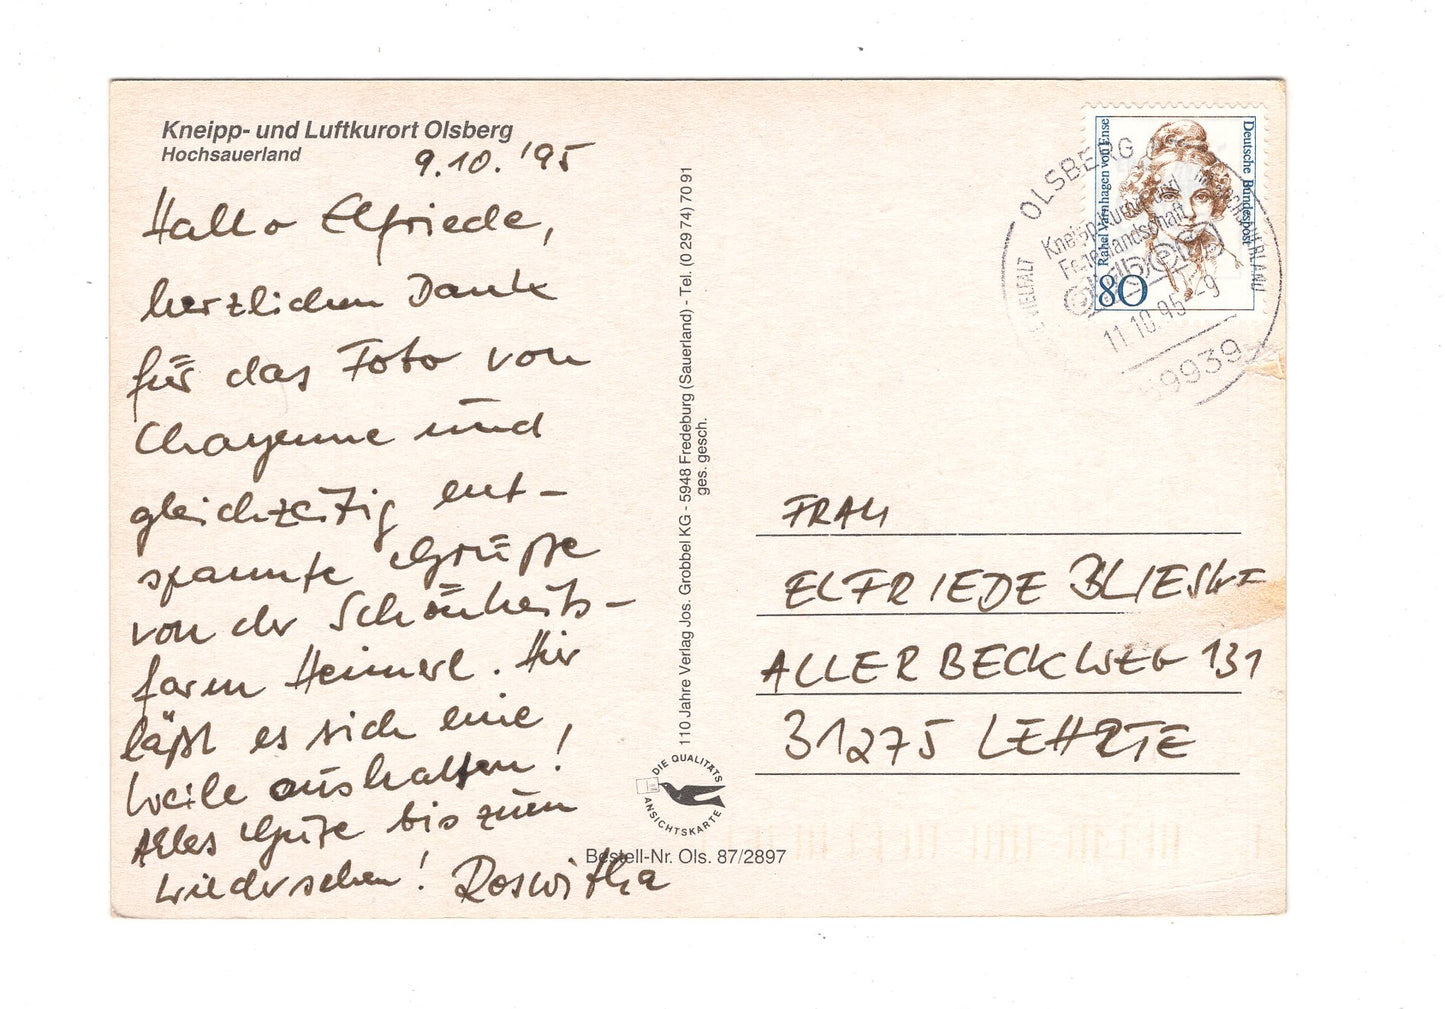 Kneipp- und Luftkurort Olsberg
Hochsauerland
9.10.'95
Hallo Elfriede,
herzlichen Dank
für das Foto von
Chayenne und
gleichzeitig ent-
spannte Grüße
von der Schönheits-
farm Heimerl. Hier
läßt es sich eine
Weile aushalten!
Alles Gute bis zum
Wiedersehen! Roswitha
110 Jahre Verlag Jos. Grobbel KG - 5948 Fredeburg (Sauerland) - Tel. (0 29 74) 70 91
ges. gesch.
DIE QUALITÄTS
ANSICHTSKARTE
Bestell-Nr. Ols. 87/2897
Rahel Varnhagen von Ense
Deutsche Bundespost
80
OLSBERG
11.10.95-9
59939
FRAU
ELFRIEDE BLIESKE
ALLERBECKWEG 131
31275 LEHRTE